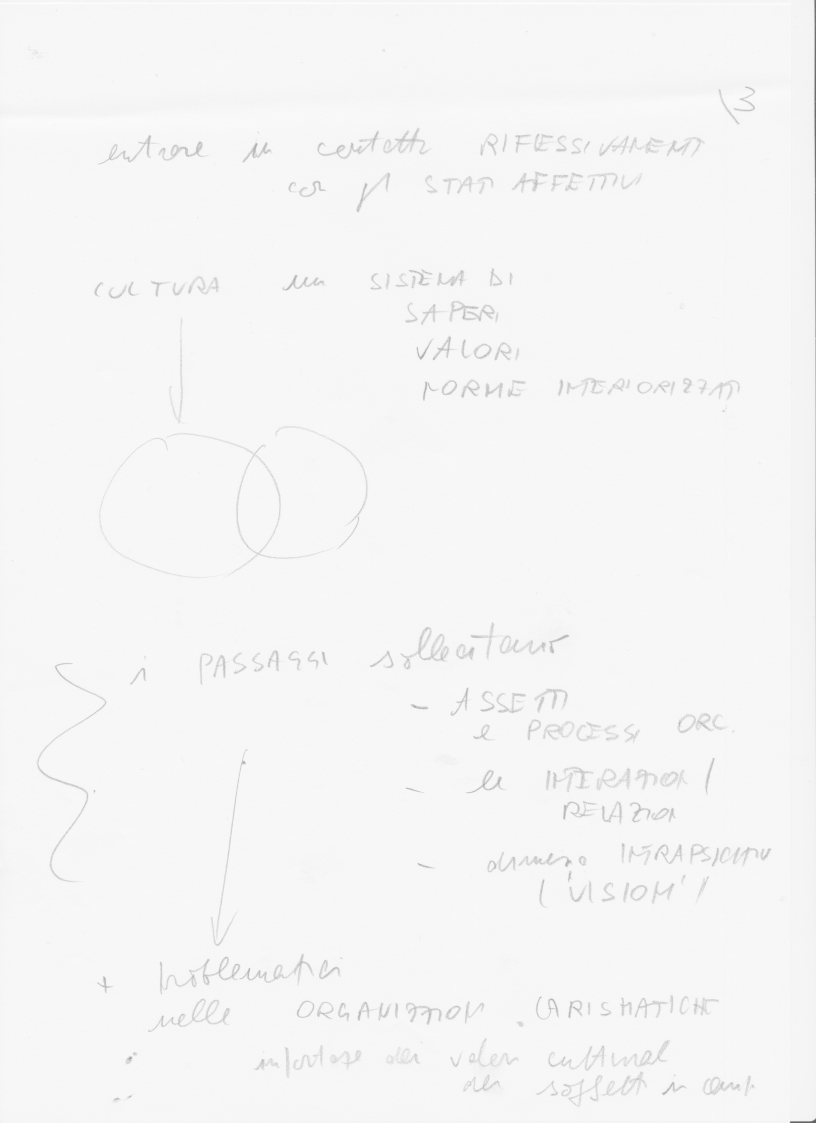 \3
entrare in contatto RIFLESSIVAMENT
con gl STATI AFFETTIVI
CULTURA un SISTEMA DI
SAPERI
VALORI
NORME INTERIORIZZATI
i PASSAGGI sollecitano
- ASSETTI
e PROCESSI ORG.
- le INTERAZIONI /
RELAZIONI
- INTRAPSICHICH
("VISIONI")
+ problematici
nelle ORGANIZZAZIONI CARISMATICHE
importanza dei valori culturali
dei soggetti in camp.